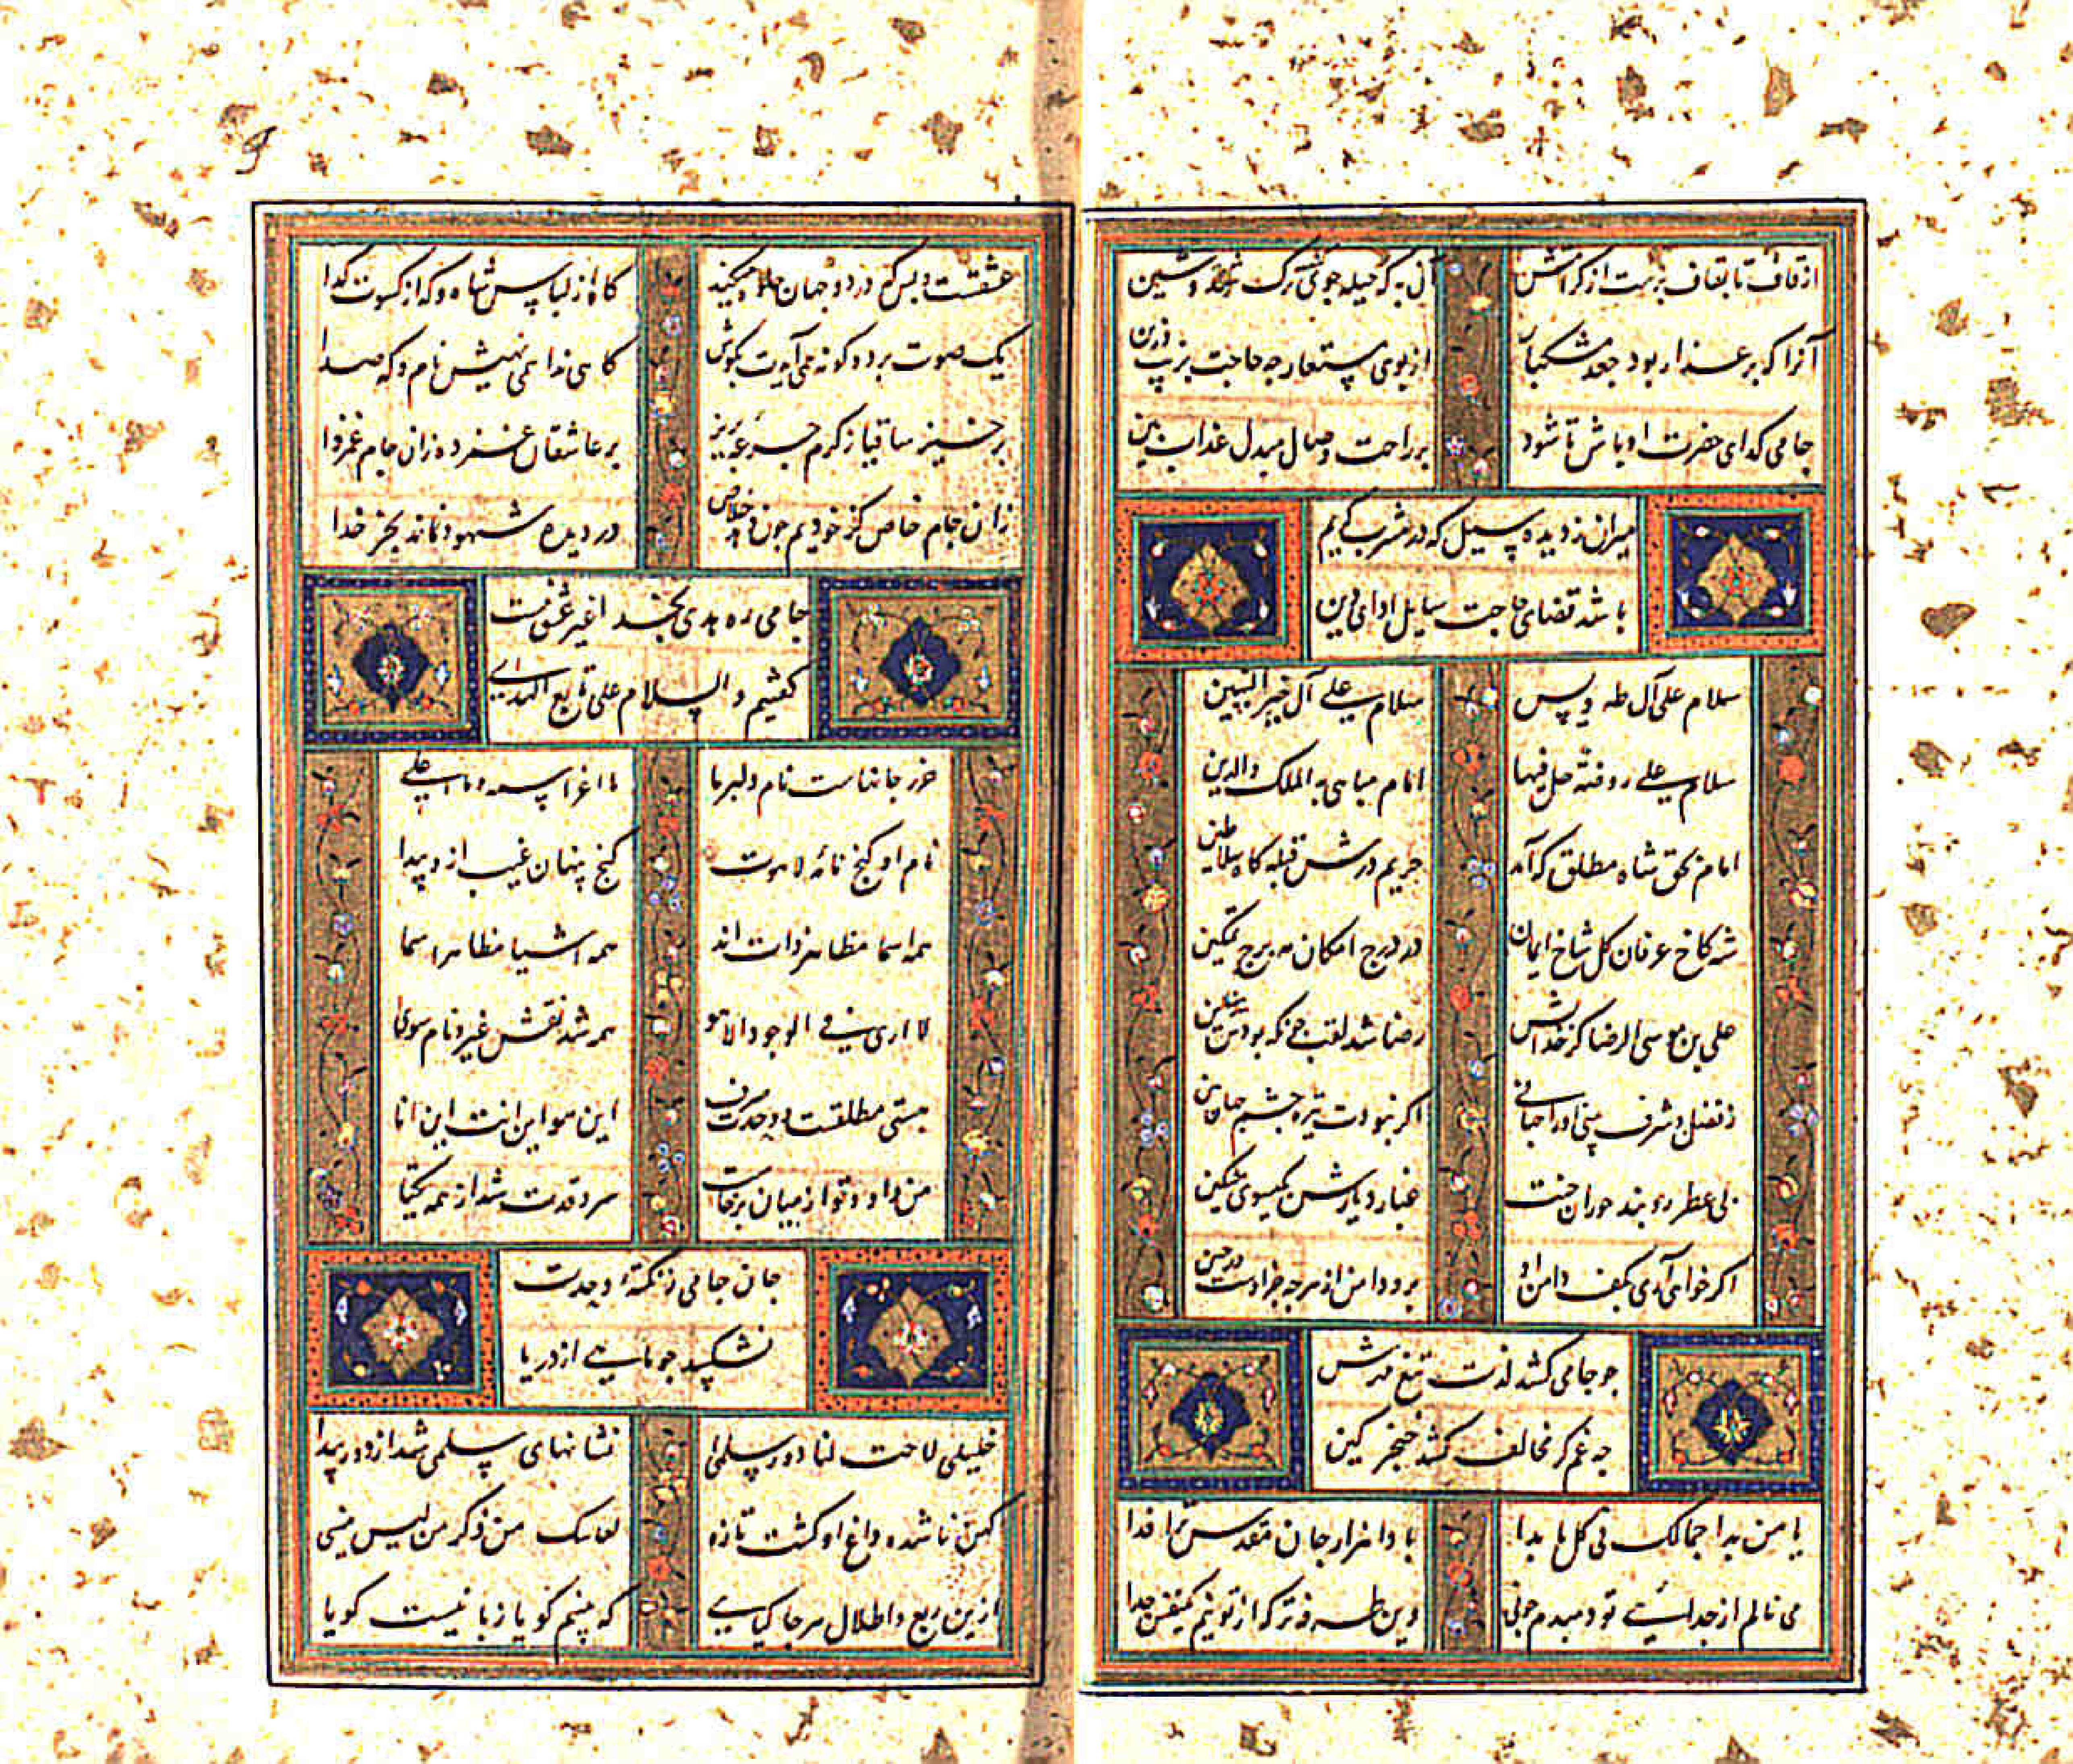 از قاف تا بقاف پرست از کرامتش
آن به که حیله جوئی ترک وشین
آنرا که بر عذار بود جعد مشکبار
از بوی مستعار چه حاجت بزیب وزین
جامی کدای حضرت او باش تا شود
بر راحت وصال مبدل عذاب بین
میران ز دیده سیل که در مشرب کریم
باشد قضای حاجت سایل ادای دین
سلام علی آل طه ویس
سلام علی آل خیر النبیین
سلام علی روضة حل فیها
امام یباهی به الملک والدین
امام بحق شاه مطلق که آمد
حریم درش قبله کاه سلاطین
شه کاخ عرفان کل شاخ ایمان
در درج امکان مه برج تمکین
علی بن موسی الرضا کز خدایش
رضا شد لقب چونکه بودش رضا آیین
ز فضل و شرف بینی او را جهانی
اکر نبودت تیره چشم جهان بین
پی عطر روبند حوران جنت
غبار دیارش بکیسوی مشکین
اکر خواهی آری بکف دامن او
برو دامن از هر چه جز اوست در چین
چو جامی کشد لذت تیغ مهرش
چه غم کر مخالف کشد خنجر کین
یا من بدا جمالک فی کل ما بدا
بادا هزار جان مقدس ترا فدا
می نالم از جدائی تو دمبدم چو نی
وین طرفه تر که از تو نیم یکنفس جدا
عشقست و بس که در دو جهان جلوه میکند
کاه از لباس شاه و که از کسوت کدا
یک صوت بر دو کونه همی آیدت بکوش
کاهی ندا همی نهیش نام و که صدا
برخیز ساقیا ز کرم جرعه بریز
بر عاشقان غمزده زان جام غمزدا
زان جام خاص کز خودیم چون دهد خلاص
در دیده شهود نماند بجز خدا
جامی ره هدی بخدا غیر عشق نیست
کفتیم والسلام علی تابع الهدی
حرز جانهاست نام دلبر ما
ما اعز اسمه وما اعلی
نام او کنج نامه لاهوت
کنج پنهان غیب ازو پیدا
همه اسما مظاهر ذات اند
همه اشیا مظاهر اسما
لا اری فی الوجود الا هو
همه شد نقش غیر و نام سوی
هستی مطلقست و وحدت صرف
این هو این انت این انا
من و او و تو از میان برخاست
سر وحدت شد از همه یکتا
جان جامی ز نکته وحدت
نشکیبد چو ماهی از دریا
خلیلی لاحت لنا دور سلمی
نشانهای سلمی شد از دور پیدا
کهن ناشده داغ او کشت تازه
تعاسک من ذکر من لیس ینسی
ازین ربع و اطلال هر جا کیاهی
که بینم کویا زبانیست کویا